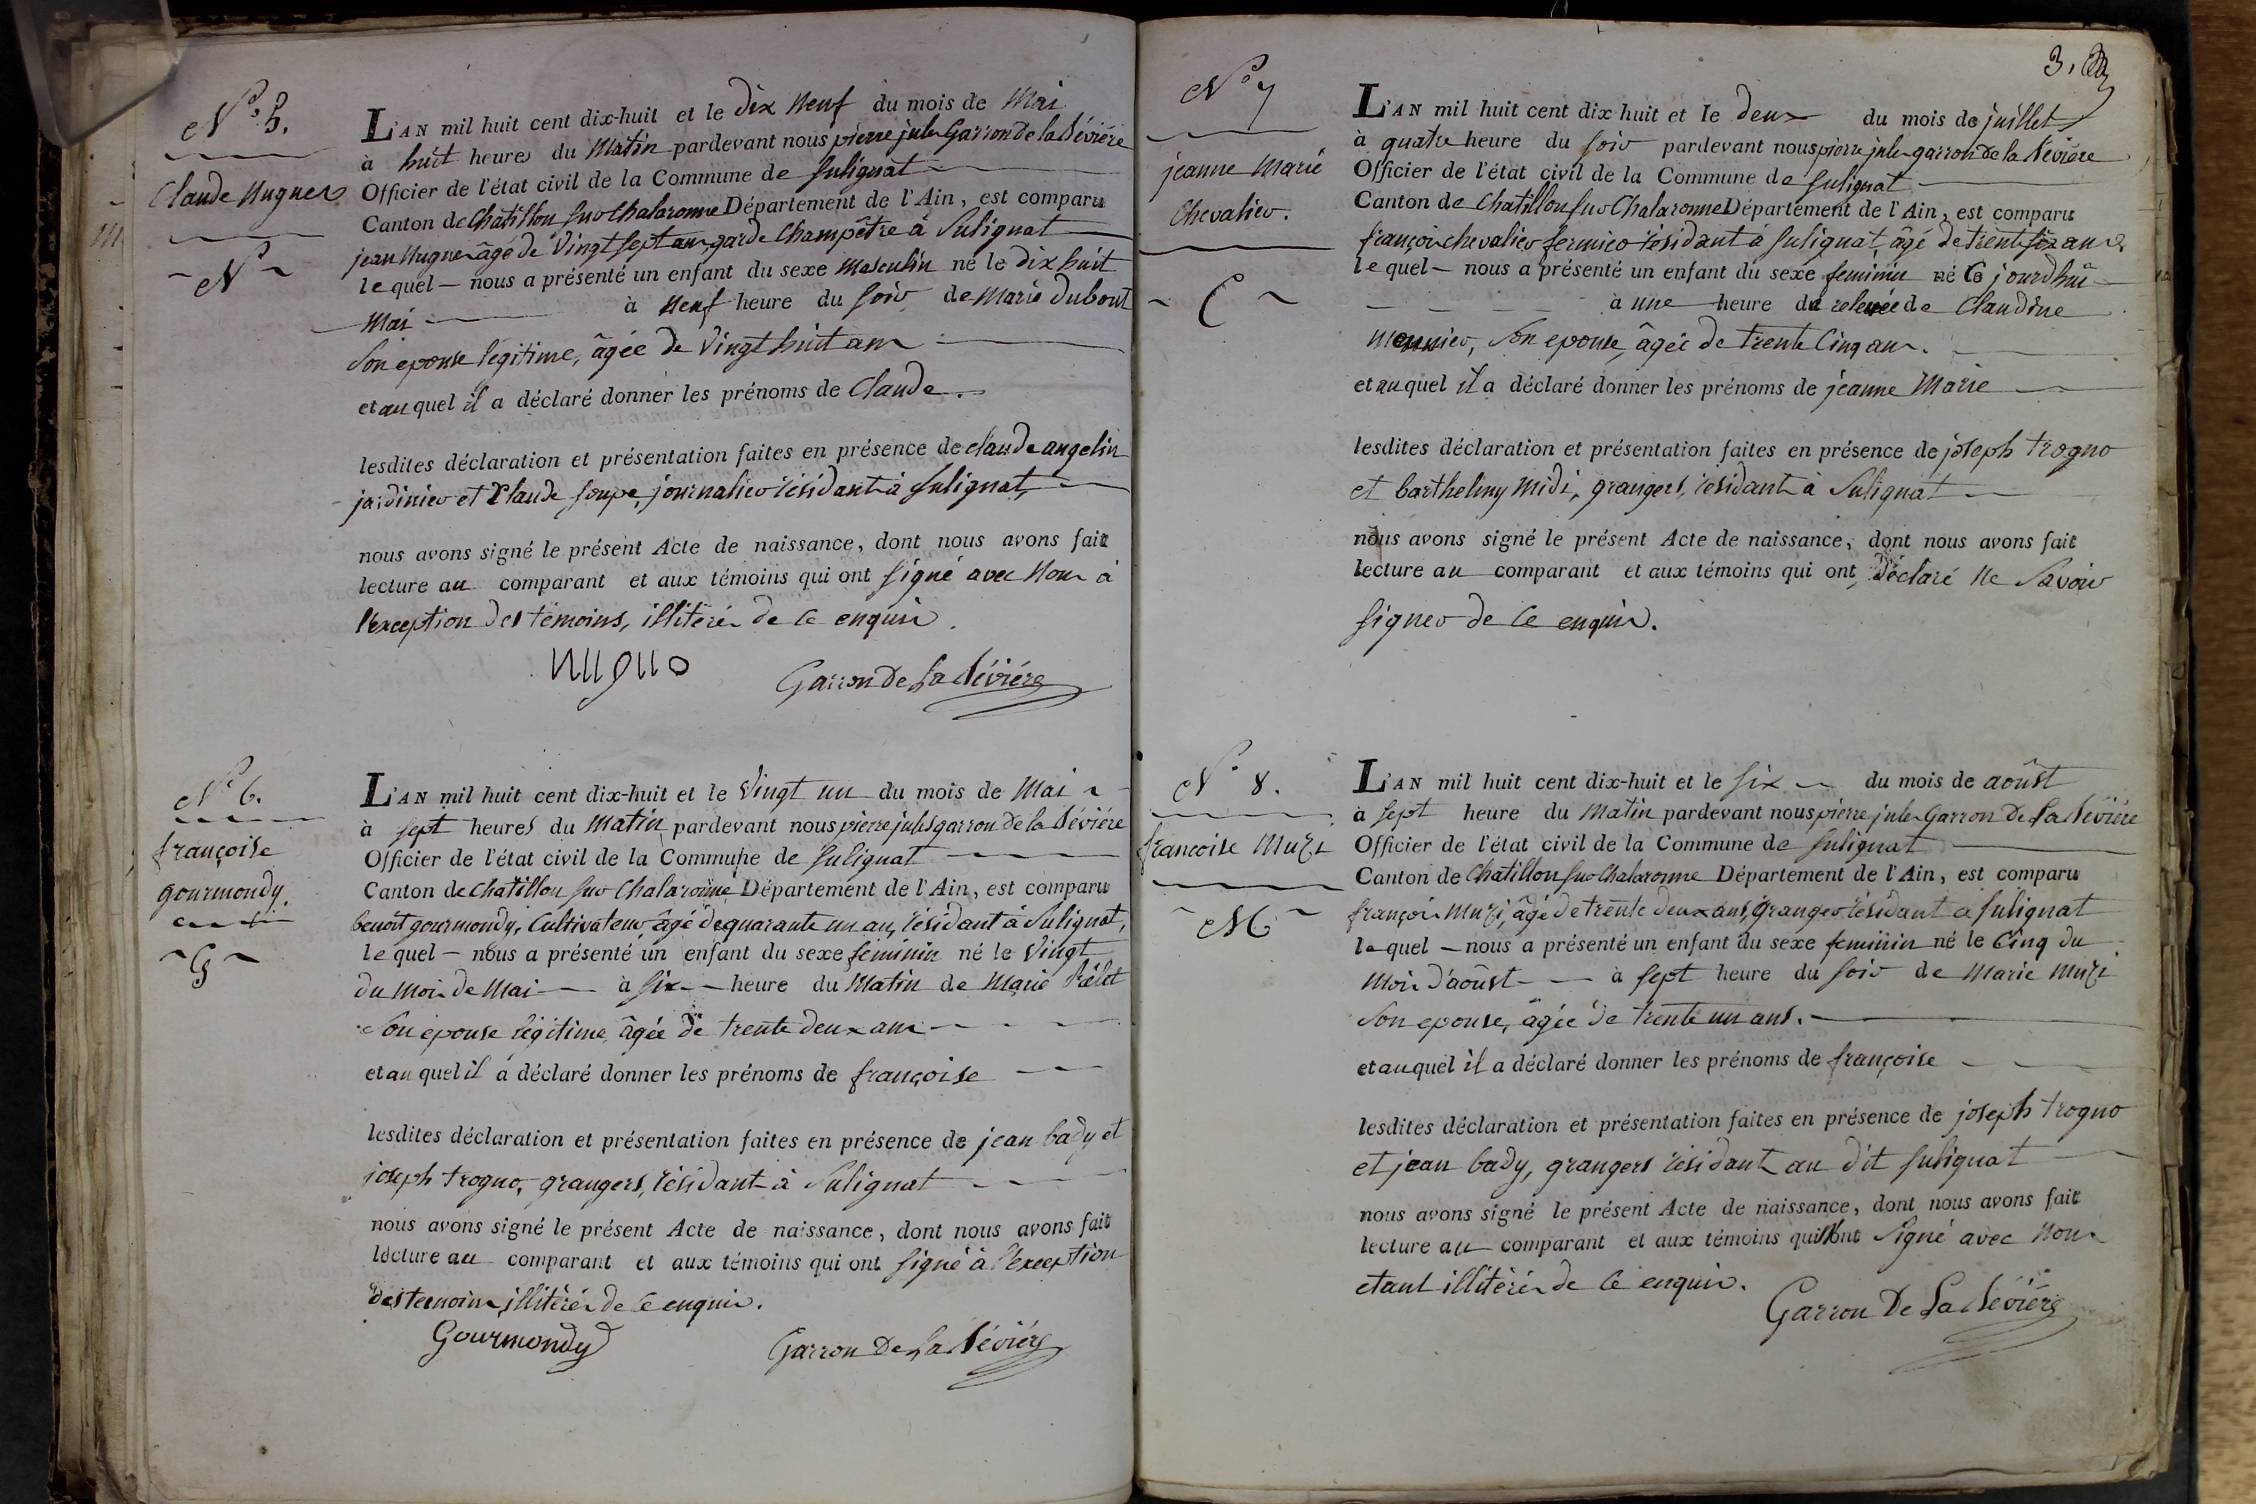 N.° 5.
Claude Nugues
N
L'AN mil huit cent dix-huit et le dix neuf du mois de Mai
à huit heures du Matin pardevant nous pierre jules Garron de la Sévière
Officier de l'état civil de la Commune de Sulignat
Canton de Chatillon sur Chalaronne Département de l'Ain, est comparu
jean Nugues âgé de Vingt sept ans garde Champêtre à Sulignat
le quel nous a présenté un enfant du sexe Masculin né le dix huit
Mai à Neuf heure du soir de Marie Dubout
Son epouse légitime, âgée de Vingt huit ans
et au quel il a déclaré donner les prénoms de Claude.
lesdites déclaration et présentation faites en présence de claude angelin
jardinier et Claude soupe, journalier résidants à Sulignat,
nous avons signé le présent Acte de naissance, dont nous avons fait
lecture au comparant et aux témoins qui ont signé avec Nous à
l'exception des témoins, illitérés de ce enquis.
Garron De La Sévière
N.° 6.
françoise
gourmondy.
G
L'AN mil huit cent dix-huit et le Vingt un du mois de Mai
à sept heures du Matin pardevant nous pierre jules garron de la Sévière
Officier de l'état civil de la Commune de Sulignat
Canton de Chatillon sur Chalaronne Département de l'Ain, est comparu
benoit gourmondy, Cultivateur, âgé de quarante un an, résidant à Sulignat,
le quel nous a présenté un enfant du sexe féminin né le Vingt
du mois de Mai à six heure du Matin de Marie
Son epouse légitime, âgée de trente deux ans
et au quel il a déclaré donner les prénoms de françoise
lesdites déclaration et présentation faites en présence de jean bady et
joseph trogno, grangers, résidants à Sulignat
nous avons signé le présent Acte de naissance, dont nous avons fait
lecture au comparant et aux témoins qui ont signé à l'exception
des temoins, illitérés de ce enquis.
Gourmondy Garron De La Sévière
3.
N° 7
jeanne Marie
Chevalier.
C
L'AN mil huit cent dix-huit et le deux du mois de juillet
à quatre heure du soir pardevant nous pierre jules garron de la Sévière
Officier de l'état civil de la Commune de Sulignat
Canton de Chatillon sur Chalaronne Département de l'Ain, est comparu
françois chevalier fermier résidant à Sulignat, âgé de trente six ans,
le quel nous a présenté un enfant du sexe feminin né Ce jourdhui
à une heure de relevée de Claudine
Meunier, Son epouse, âgée de trente Cinq ans.
et au quel il a déclaré donner les prénoms de jeanne Marie
lesdites déclaration et présentation faites en présence de joseph trogno
et barthelmy Midi, grangers, résidants à Sulignat
nous avons signé le présent Acte de naissance, dont nous avons fait
lecture au comparant et aux témoins qui ont déclaré Ne Savoir
signer de Ce enquis.
N° 8.
francoise Muzi
M
L'AN mil huit cent dix-huit et le six du mois de août
à sept heure du Matin pardevant nous pierre jules Garron De La Sévière
Officier de l'état civil de la Commune de Sulignat
Canton de Chatillon sur Chalaronne Département de l'Ain, est comparu
françois Muzi, âgé de trente deux ans, Granger résidant à Sulignat
le quel nous a présenté un enfant du sexe feminin né le Cinq du
Mois d'août à sept heure du soir de Marie Muzi
Son epouse, âgée de trente un ans.
et au quel il a déclaré donner les prénoms de françoise
lesdites déclaration et présentation faites en présence de joseph trogno
et jean bady, grangers résidants au dit Sulignat
nous avons signé le présent Acte de naissance, dont nous avons fait
lecture au comparant et aux témoins qui Signé avec Nous
etant illitérés de Ce enquis.
Garron De La Sévière